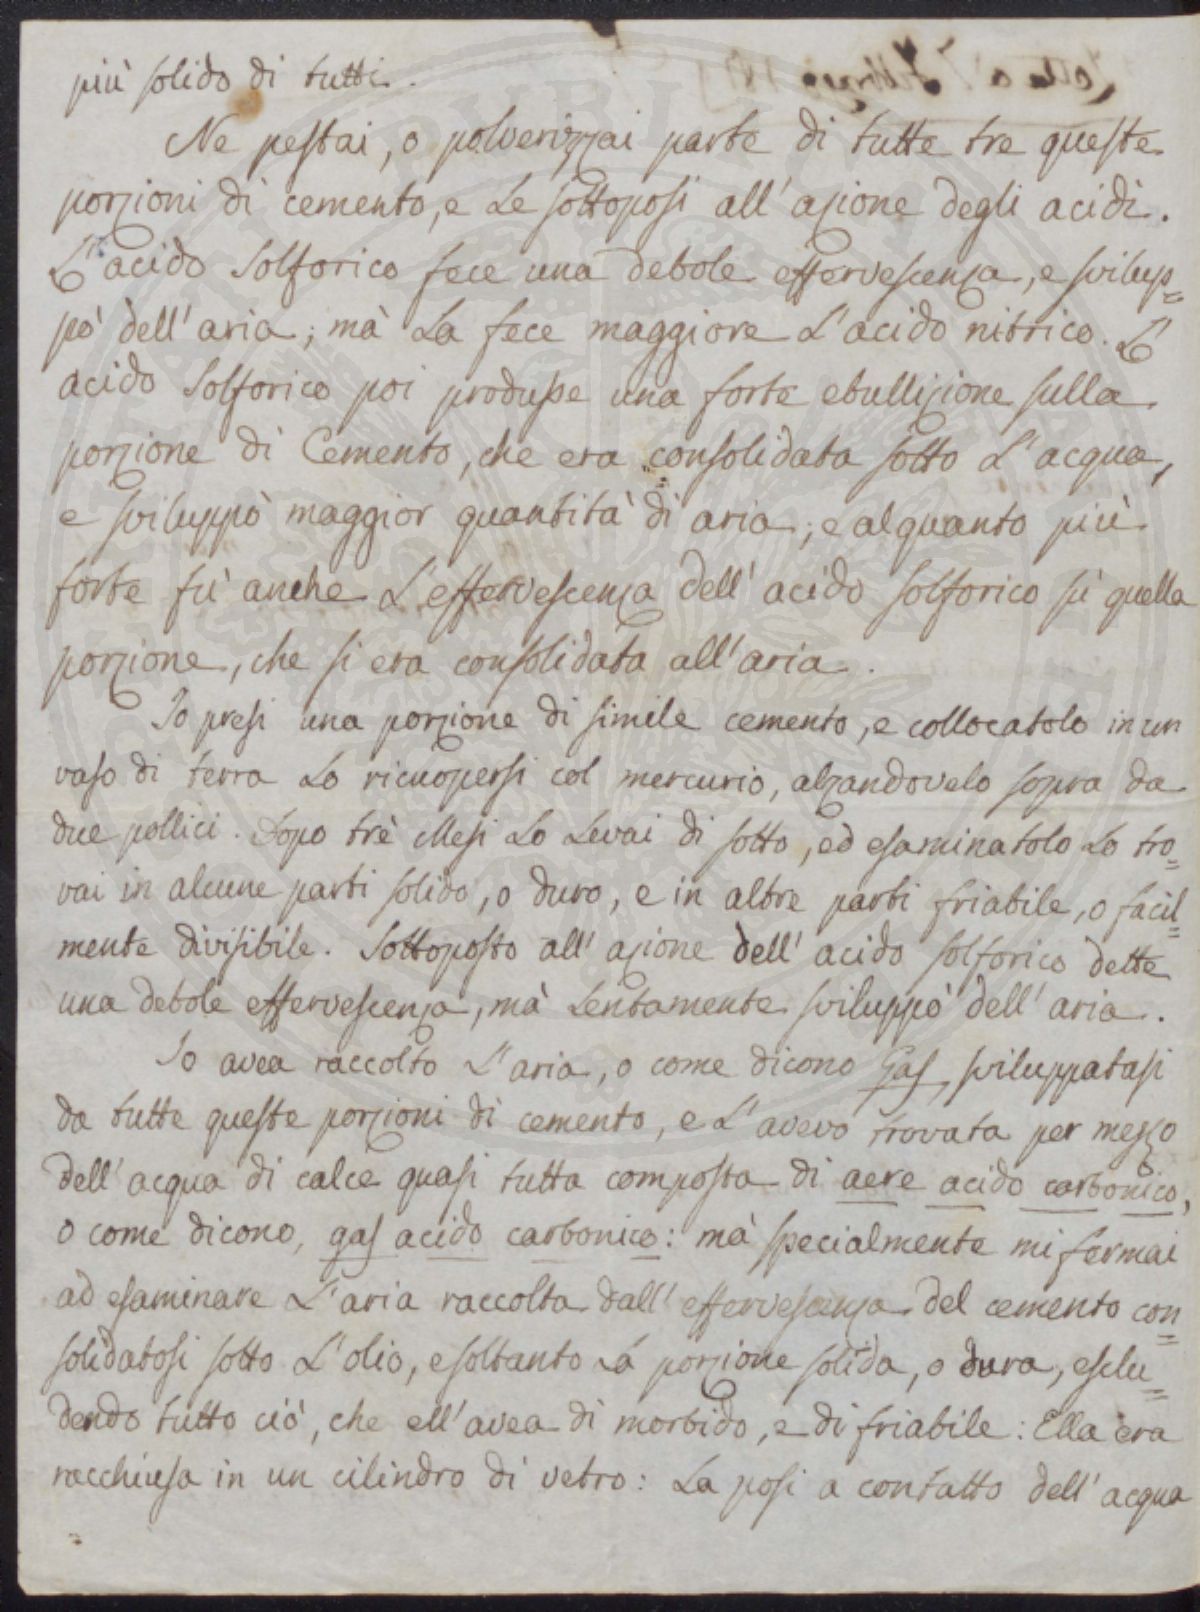 più solido di tutti.
Ne pestai, o polverizzai parte di tutte tre queste
porzioni di cemento, e le sottoposi all'azione degli acidi.
L'acido Solforico fece una debole effervescenza, e svilup=
pò dell'aria; mà la fece maggiore l'acido nitrico. L'
acido Solforico poi produsse una forte ebullizione sulla
porzione di Cemento, che era consolidata sotto l'acqua,
e sviluppò maggior quantità di aria; e alquanto più
forte fù anche l'effervescenza dell'acido solforico sù quella
porzione, che si era consolidata all'aria.
Io presi una porzione di simile cemento, e collocatolo in un
vaso di terra lo ricuopersi col mercurio, alzandovelo sopra da
due pollici. Dopo trè Mesi lo levai di sotto, ed esaminatolo lo tro=
vai in alcune parti solido, o duro, e in altre parti friabile, o facil=
mente divisibile. Sottoposto all'azione dell'acido solforico dette
una debole effervescenza, mà lentamente sviluppò dell'aria.
Io avea raccolto l'aria, o come dicono Gas, sviluppatasi
da tutte queste porzioni di cemento, e l'avevo trovata per mezzo
dell'acqua di calce quasi tutta composta di aere acido carbonico,
o come dicono, gas acido carbonico: mà specialmente mi fermai
ad esaminare l'aria raccolta dall'effervescenza del cemento con=
solidatosi sotto l'olio, e soltanto la porzione solida, o dura, esclu=
dendo tutto ciò, che ell'avea di morbido, e di friabile: Ella era
racchiusa in un cilindro di vetro: La posi a contatto dell'acqua